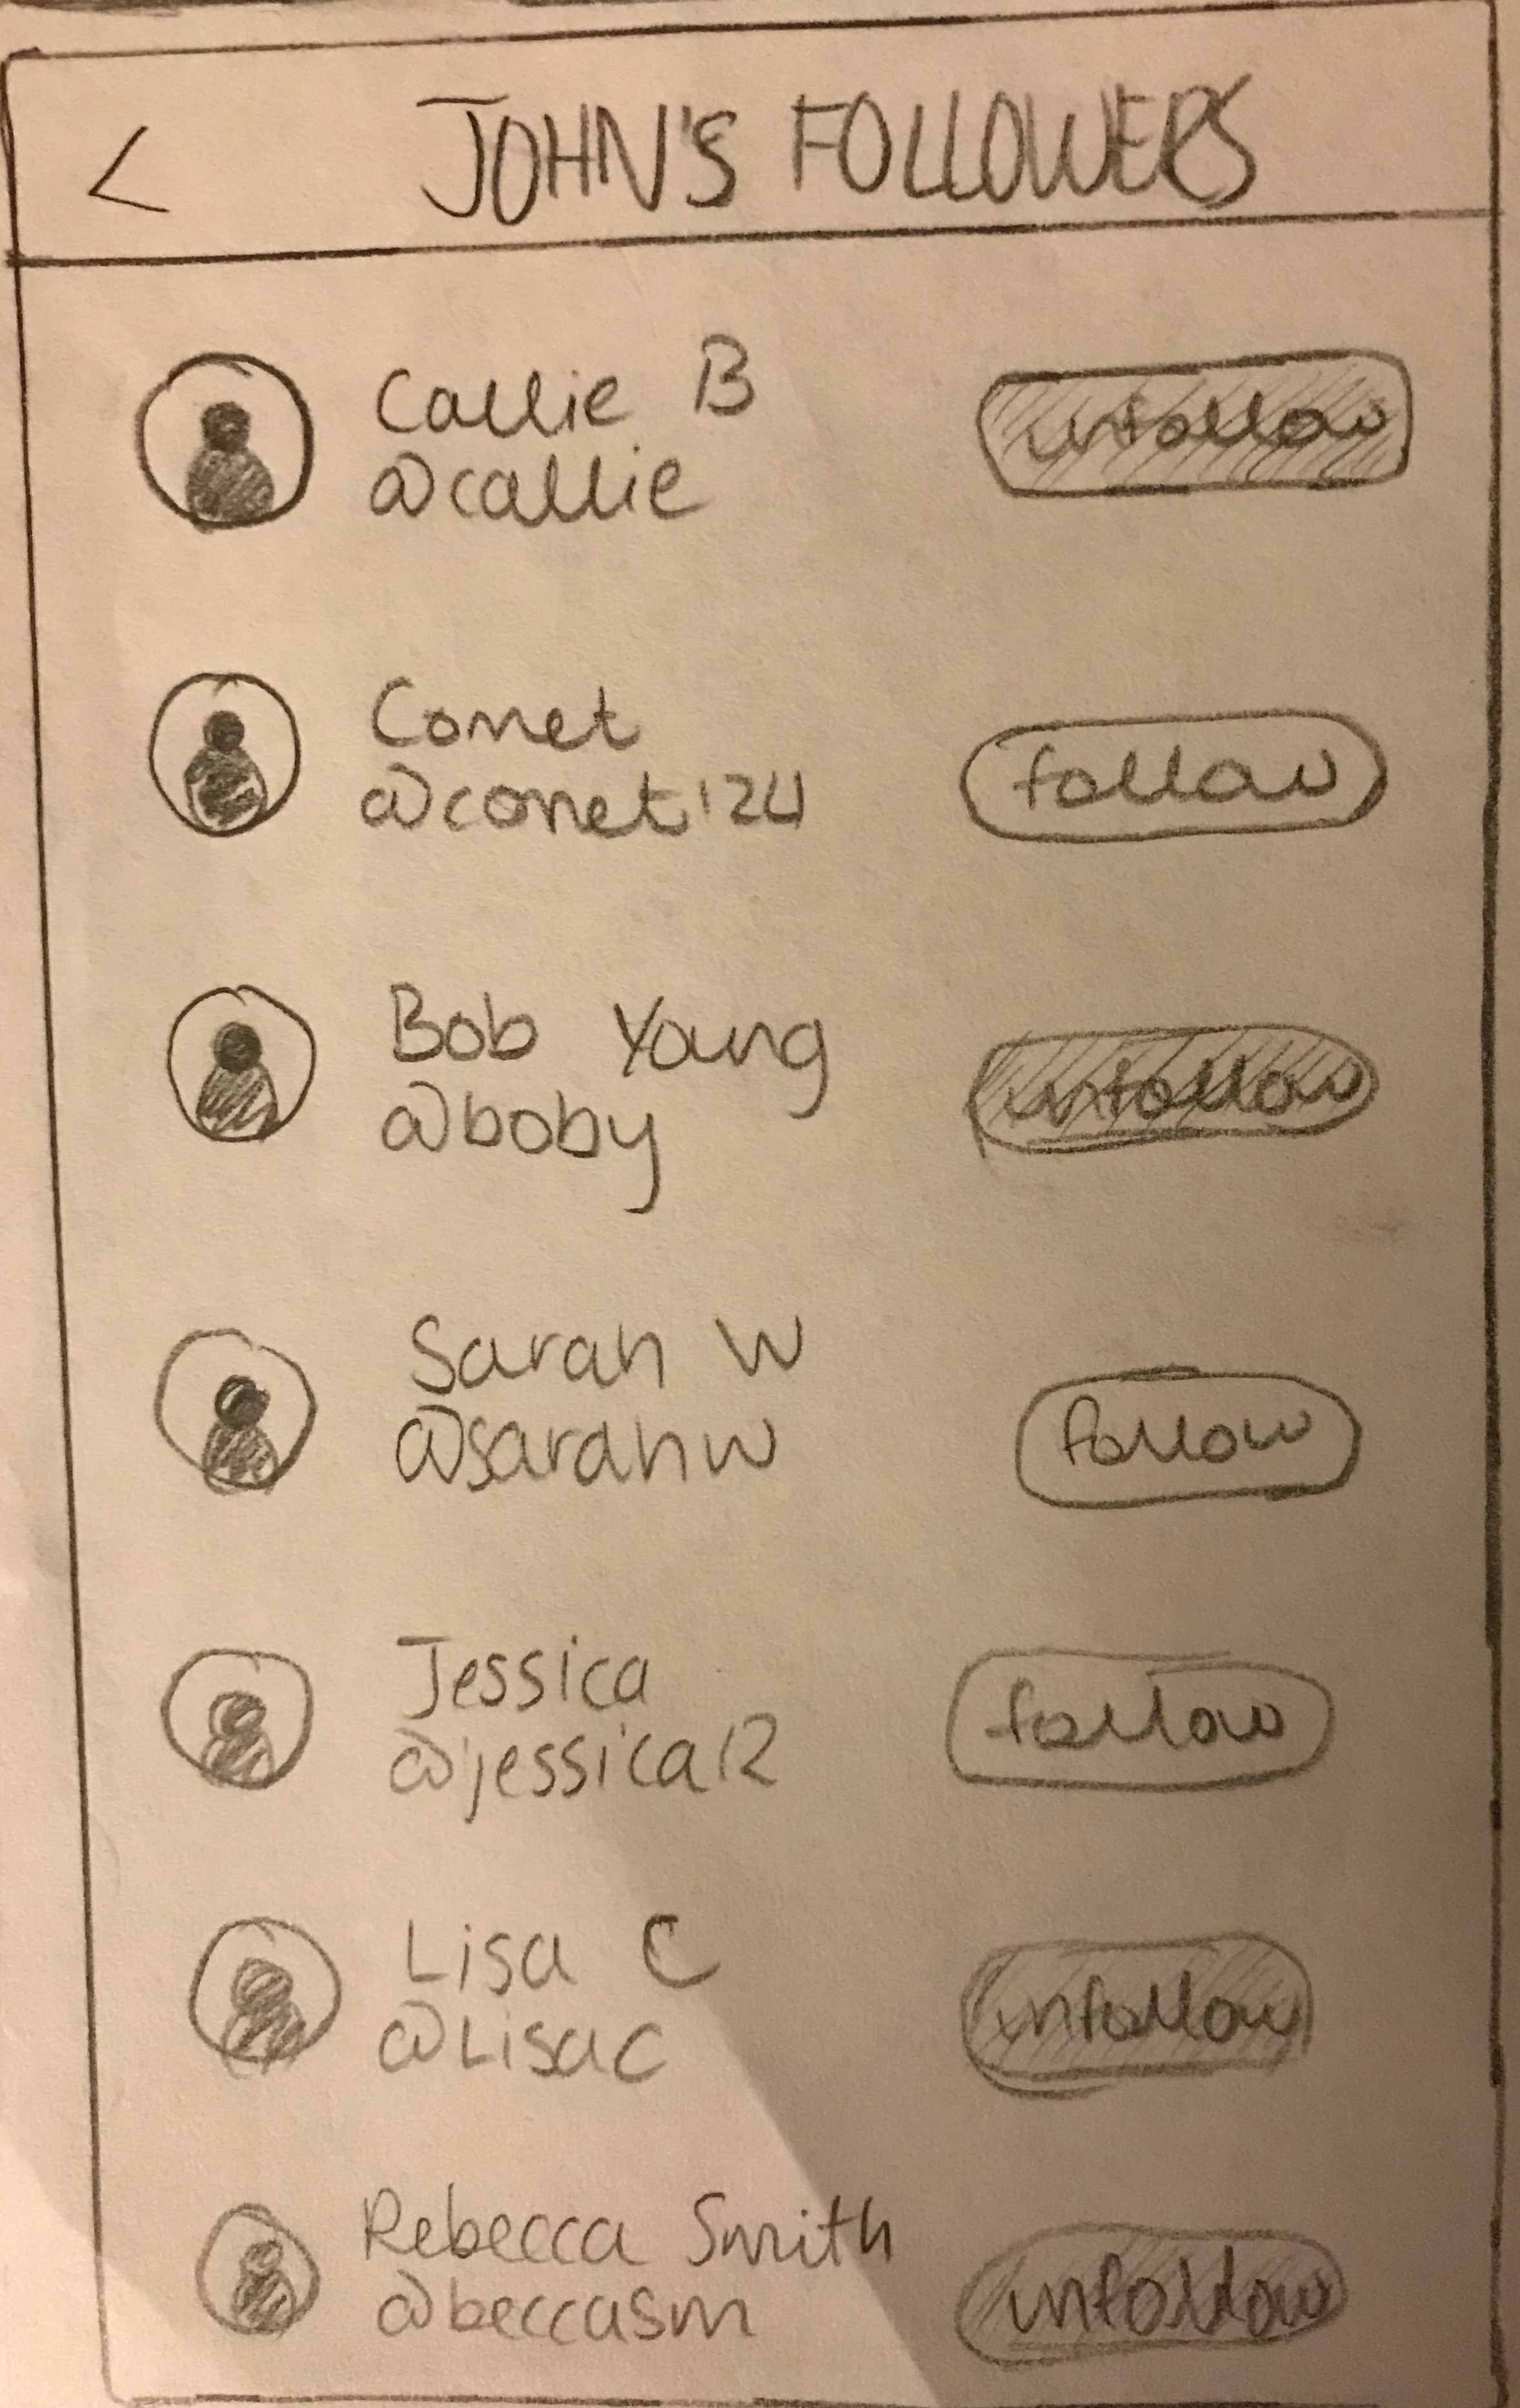 < JOHN'S FOLLOWERS
Callie B
@callie
unfollow
Comet
@comet124
follow
Bob Young
@boby
unfollow
Sarah W
@sarahw
follow
Jessica
@jessica12
follow
Lisa C
@Lisac
unfollow
Rebecca Smith
@beccasm
unfollow